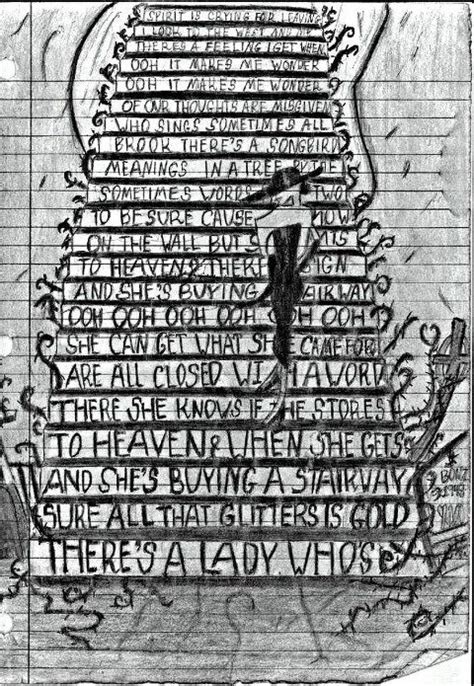 SPIRIT IS CRYING FOR LEAVING
I LOOK TO THE WEST AND MY
THERES A FEELING I GET WHEN
OOH IT MAKES ME WONDER
OOH IT MAKES ME WONDER
OF OUR THOUGHTS ARE MISGIVEN
WHO SINGS SOMETIMES ALL
BROOK THERE'S A SONGBIRD
MEANINGS IN A TREE BY THE
SOMETIMES WORDS TWO
TO BE SURE CAUSE
ON THE WALL BUT
TO HEAVEN & THERE
AND SHE'S BUYING
OOH OOH OOH OOH OOH OOH
SHE CAN GET WHAT SHE CAME FOR
ARE ALL CLOSED WITH A WORD
THERE SHE KNOWS IF THE STORES
TO HEAVEN & WHEN SHE GETS
AND SHE'S BUYING A STAIRWAY
SURE ALL THAT GLITTERS IS GOLD
THERE'S A LADY WHO'S